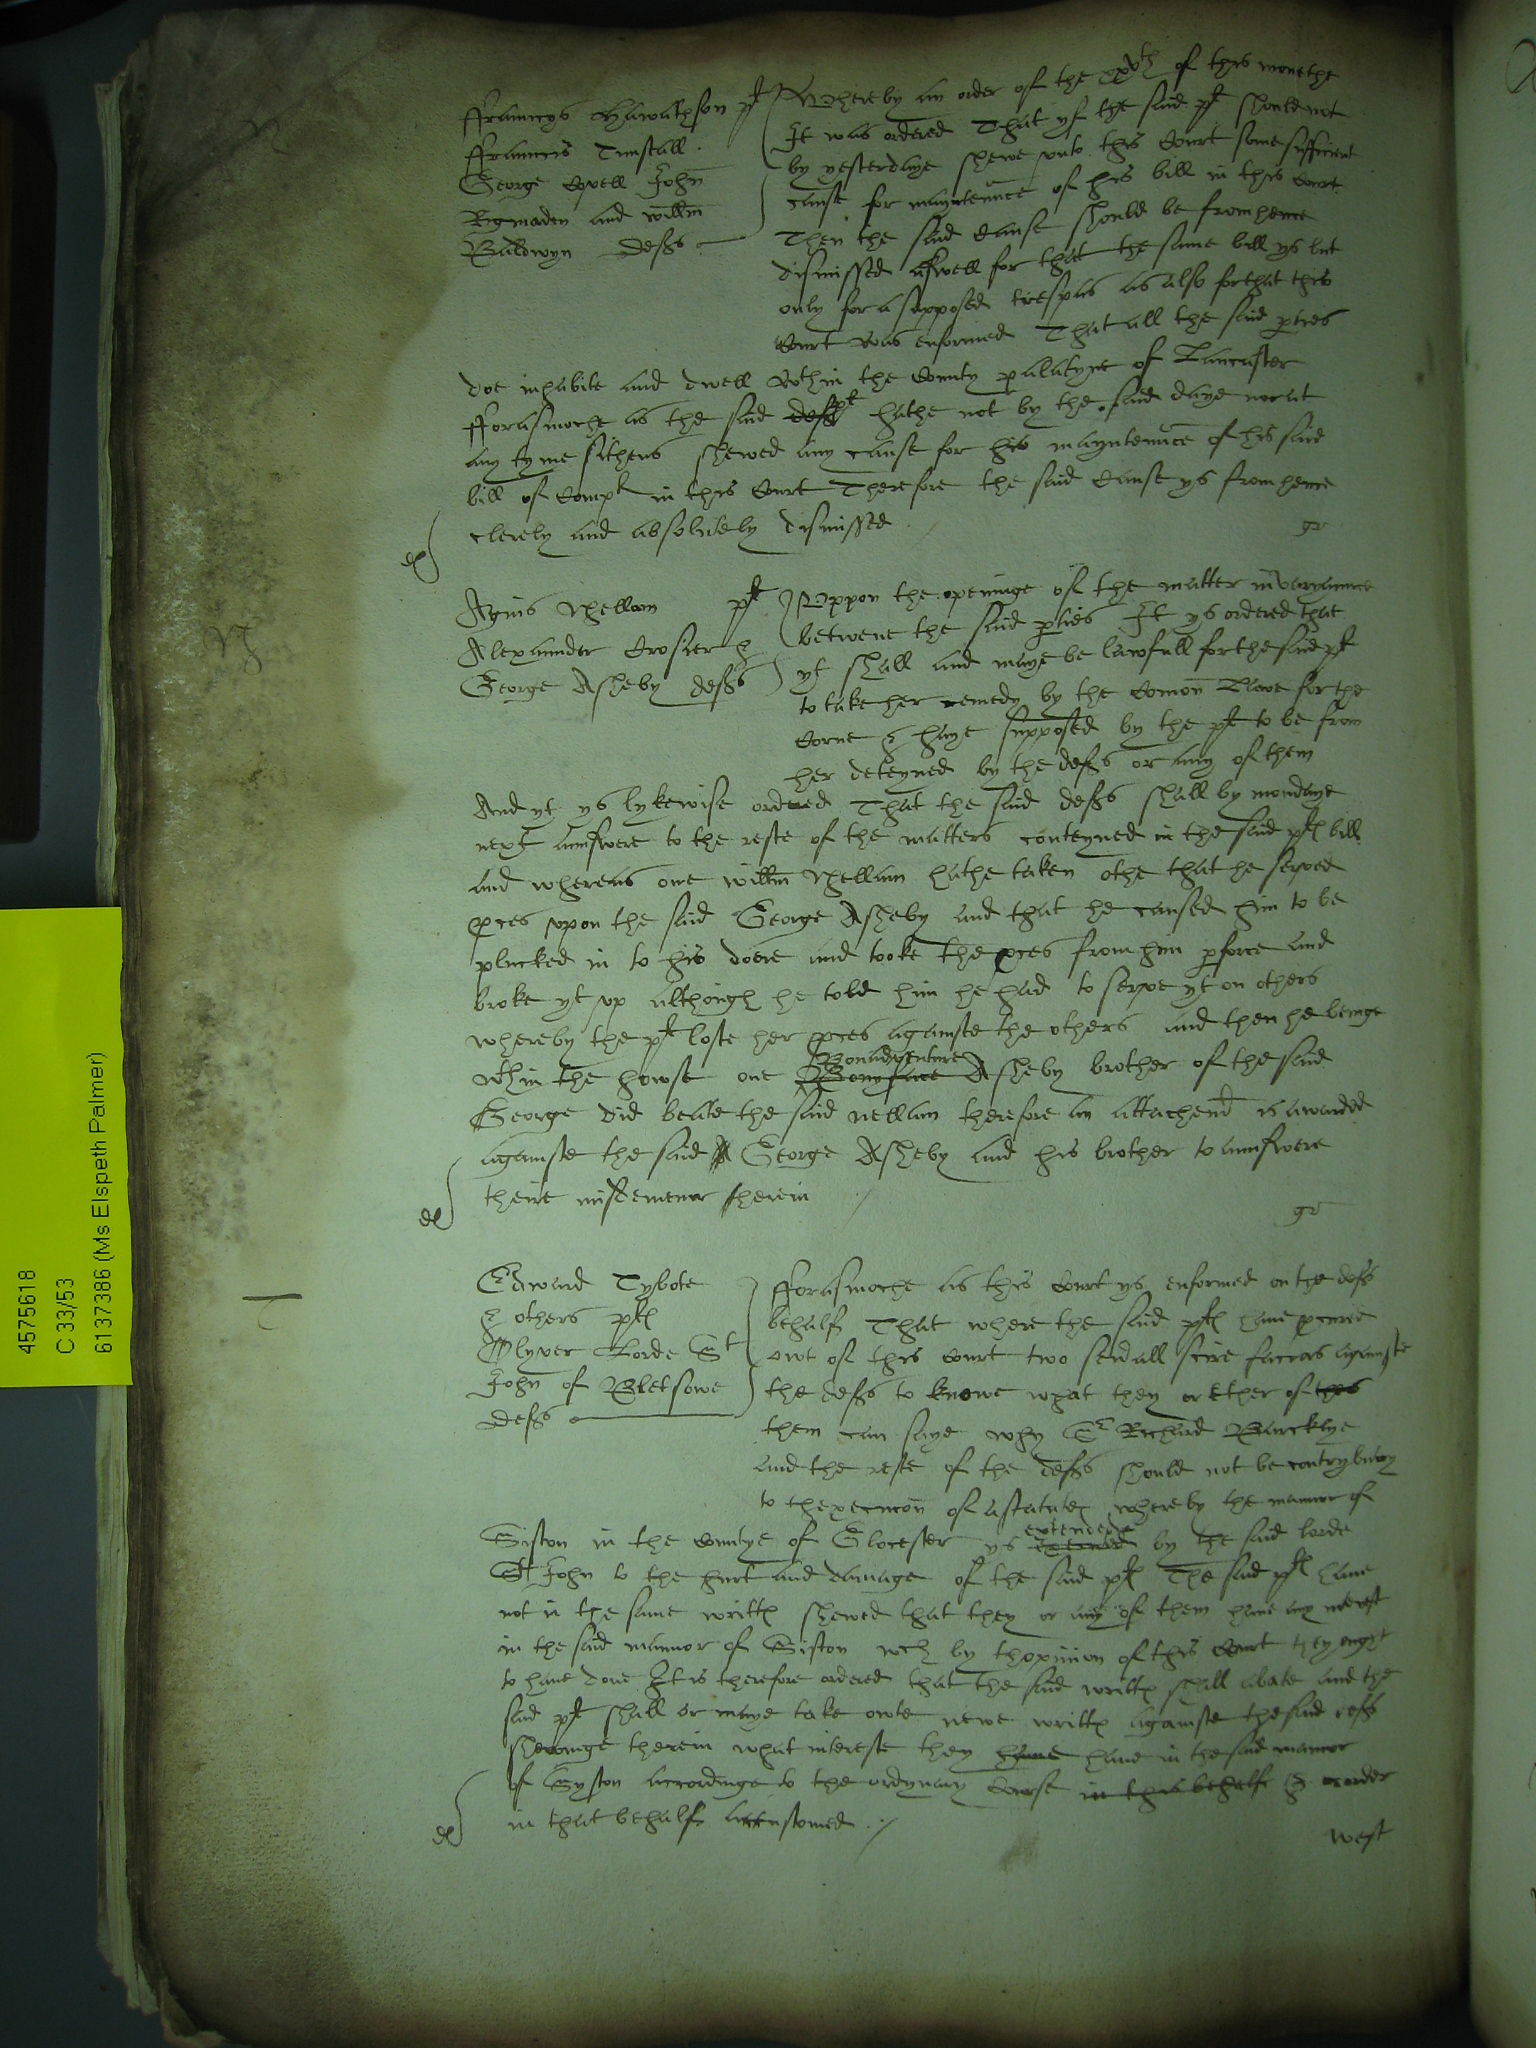 ffranncys Hawathson plt
ffranncis Tunstall
George Covell John
Rigmaden and willm
Baldwyn defts
Whereby an order of the xxvth of this monethe
It was ordered That yf the said plt should not
by yesterdaye shewe unto this Court some sufficient
cause for mayntenñce of his bill in this Court
Then the said Cause should be from hence
dismissed aswell for that the same bill ys but
only for a supposed trespas as also for that this
Court was enformed That all the said pties
doe inhabite and dwell wthin the County palatyne of Lancaster
fforasmoche as the said deft plt hathe not by the said daye nor at
any tyme sithens shewed any cause for his mayntenñce of his said
bill of Complt in this Court Therefore the said Cause ys from hence
clerely and absolutely dismissed
gr
Agnis Nellam plt
Alexannder Crosier &
George Asheby defts
Uppon the openinge of the matter in varyannce
betwene the said pties It ys ordered that
yt shall and maye be lawfull for the said plt
to take her remedy by the Comon Lawe for the
Corne & haye supposed by the plt to be from
her deteyned by the defts or any of them
And yt ys lykewise ordered That the said defts shall by mondaye
next aunswere to the reste of the matters conteyned in the said plts bill
and whereas one willm Nellam hathe taken othe that he served
pces upon the said George Asheby and that he caused him to be
plucked in to his dore and tooke the pces from him pforce and
broke yt up although he told him he had to serve yt on others
whereby the plt loste her pces againste the others and then he beinge
wthin the howse one Bonyface Bonadventure Asheby brother of the said
George did beate the said nellam therefore an attachemt is awarded
againste the said A George Asheby and his brother to aunswere
theire misdemenor therein
gr
Edward Tybote
& others plts
Olyver Lorde St
John of Bletsowe
defts
fforasmoche as this Court ys enformed on the defts
behalf That where the said plts have pcured
owt of this Court two severall scire facias againste
the defts to knowe what they or ether of this
them can saye why Sr Richard Barcklye
and the reste of the defts should not be contrybutory
to thexecucon of a statute whereby the mannor of
Siston in the Countye of Glocester ys extended extended by the said lorde
St John to the hurt and damage of the said plts The said plts have
not in the same writts shewed that they or any of them have any interest
in the said mannor of Siston wch by thopinion of this Court they ought
to have done It is therefore ordered that the said writts shall abate and the
said plt shall or maye take owte newe writts againste the said defts
shewinge therein what intereste they have have in the said mannor
of Syston accordinge to the ordynary Course in this behalfe & order
in that behalf accustomed
west
4575618
C 33/53
6137386 (Ms Elspeth Palmer)